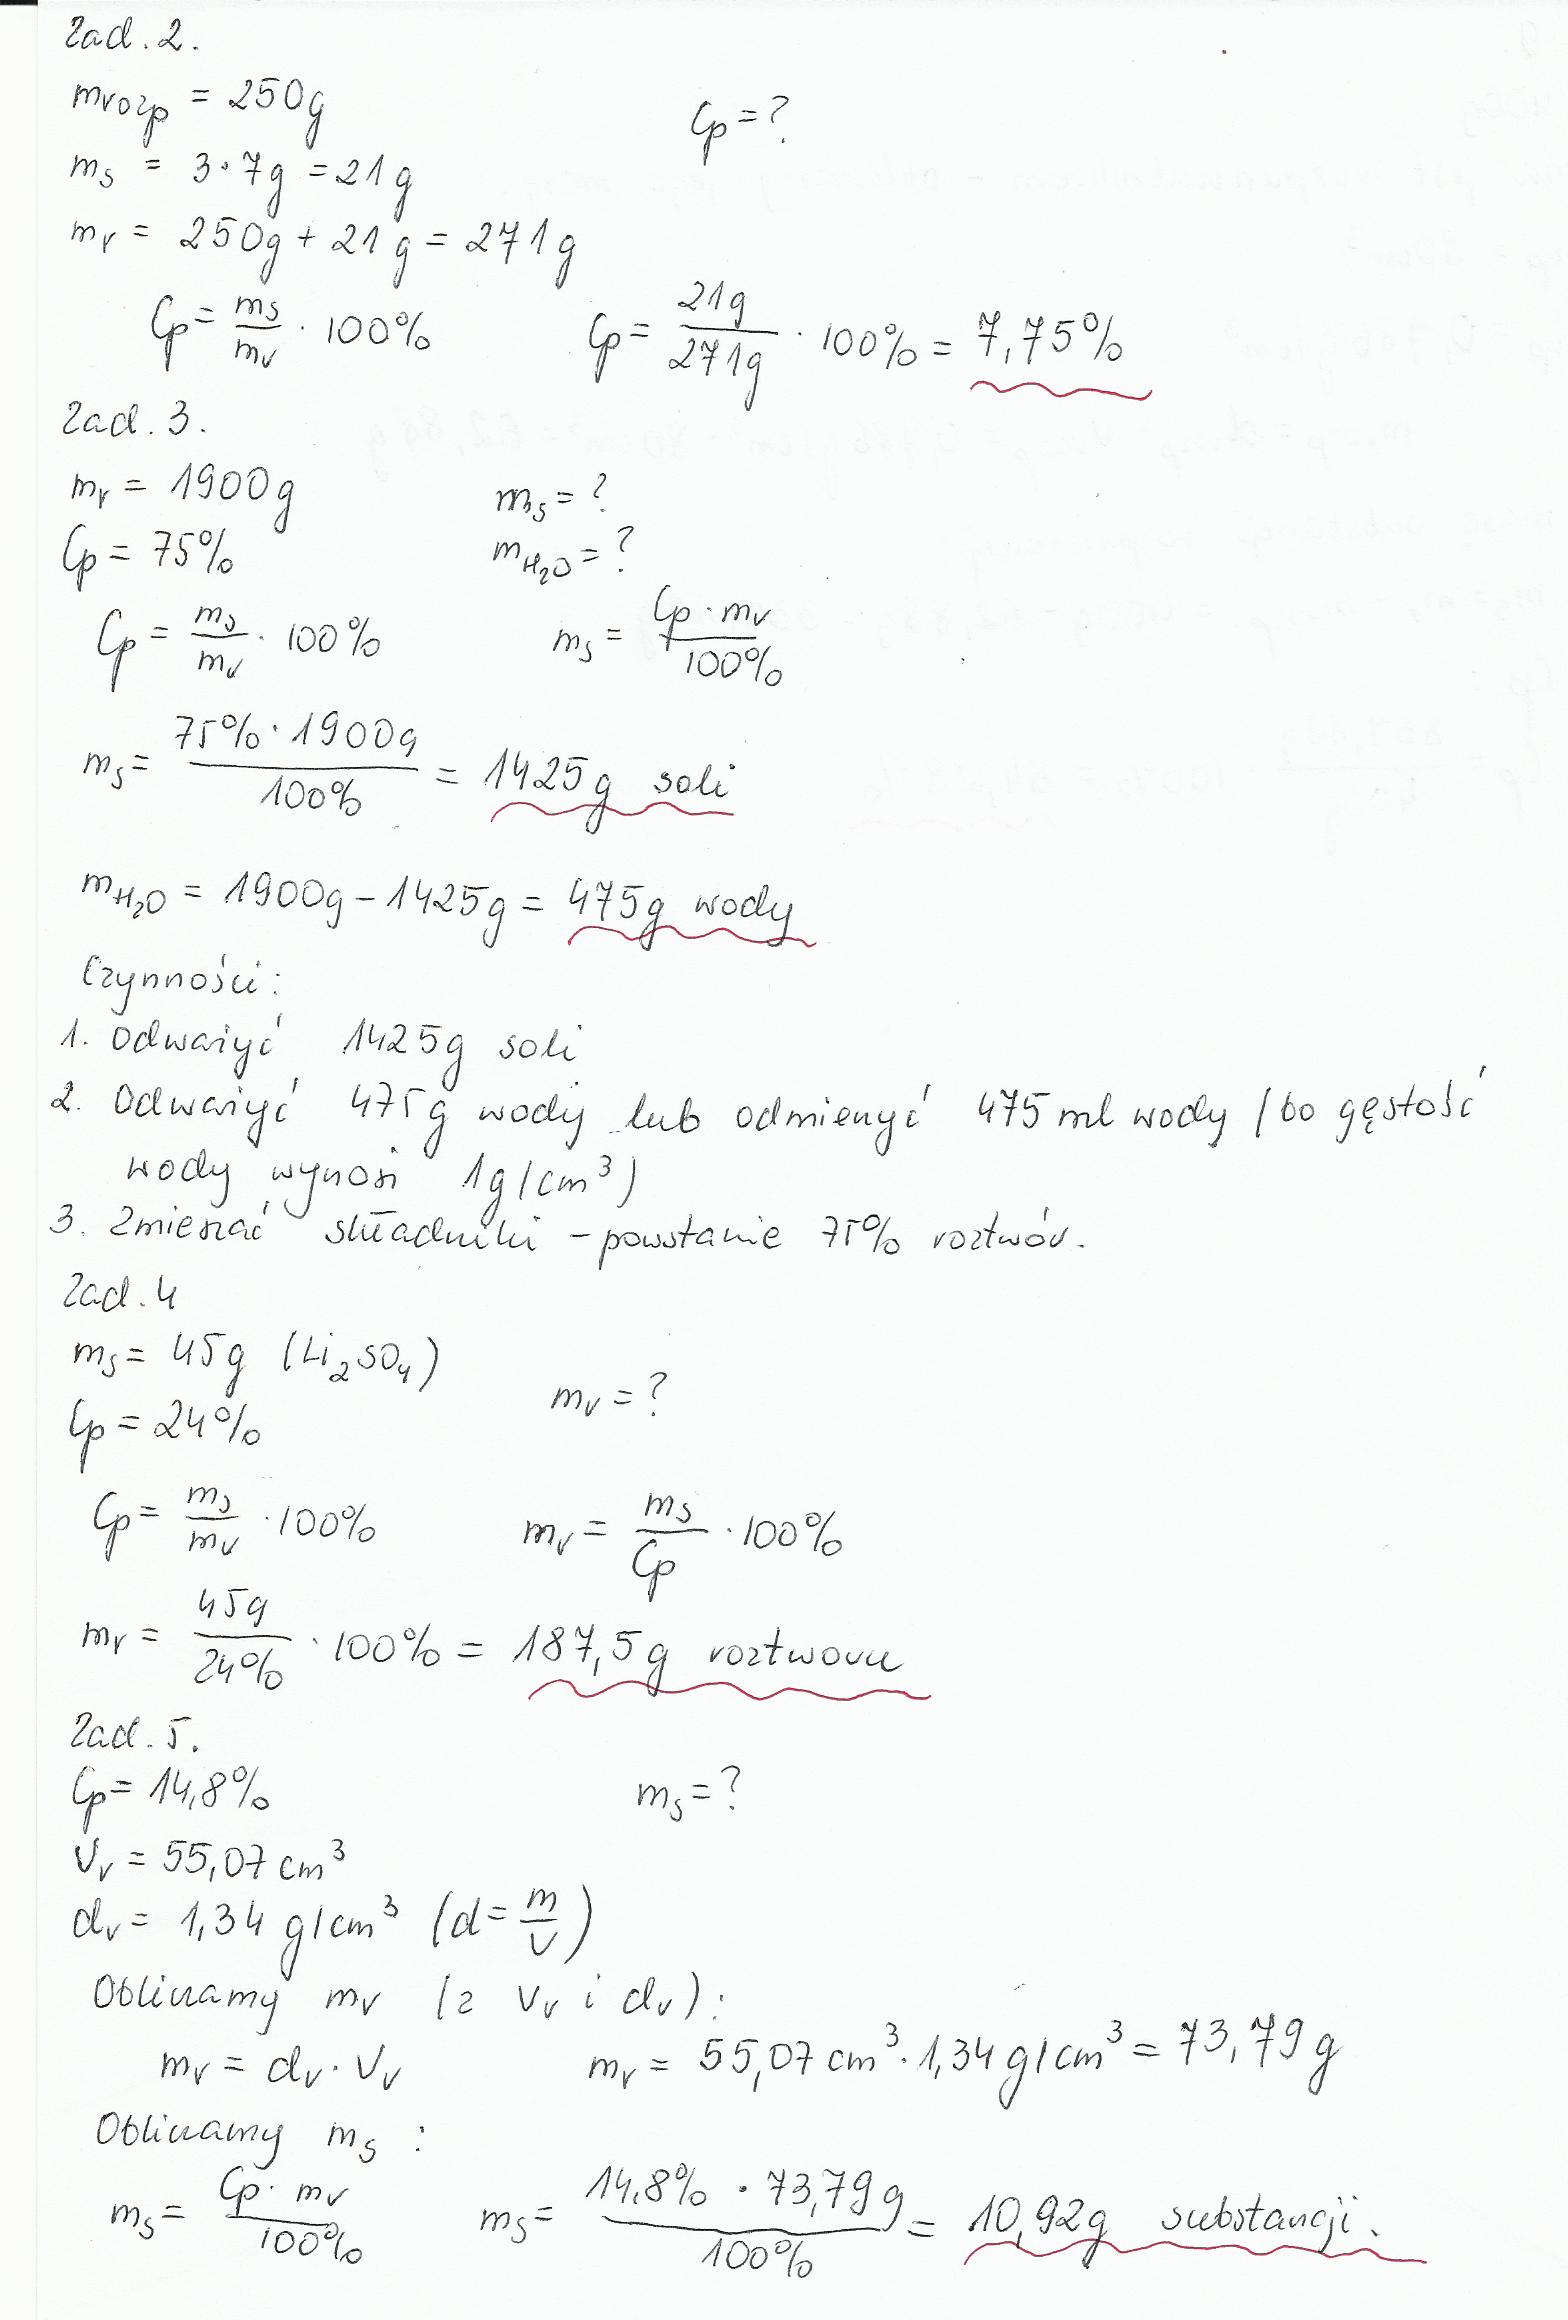 Zad. 2.
mrozp = 250g
Cp = ?
ms = 3·7g = 21g
mr = 250g + 21g = 271g
Cp = ms/mr · 100%    Cp = 21g/271g · 100% = 7,75%
Zad. 3.
mr = 1900g    ms = ?
Cp = 75%    mH₂O = ?
Cp = ms/mr · 100%    ms = Cp · mr/100%
ms = 75% · 1900g/100% = 1425g soli
mH₂O = 1900g - 1425g = 475g wody
Czynności:
1. Odważyć 1425g soli
2. Odważyć 475g wody lub odmierzyć 475 ml wody (bo gęstość
wody wynosi 1g/cm³)
3. Zmieszać składniki - powstanie 75% roztwór.
Zad. 4
ms = 45g (Li₂SO₄)
mr = ?
Cp = 24%
Cp = ms/mr · 100%    mr = ms/Cp · 100%
mr = 45g/24% · 100% = 187,5g roztworu
Zad. 5.
Cp = 14,8%    ms = ?
Vr = 55,07 cm³
dr = 1,34 g/cm³ (d = m/V)
Obliczamy mr (z Vr i dr):
mr = dr · Vr    mr = 55,07 cm³ · 1,34 g/cm³ = 73,79 g
Obliczamy ms :
ms = Cp · mr/100%    ms = 14,8% · 73,79 g/100% = 10,92g substancji.